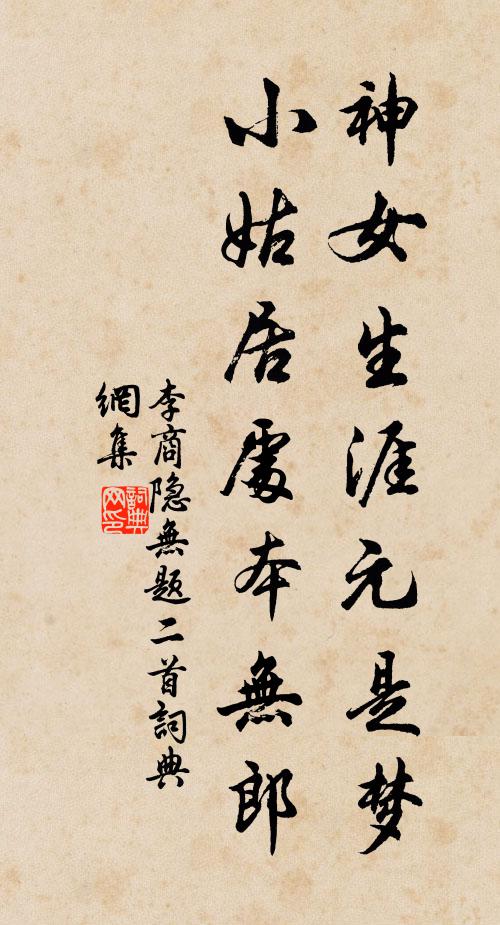 神女生涯元是梦
小姑居處本無郎
李商隐無题二首詞典
網集
詞典
网印